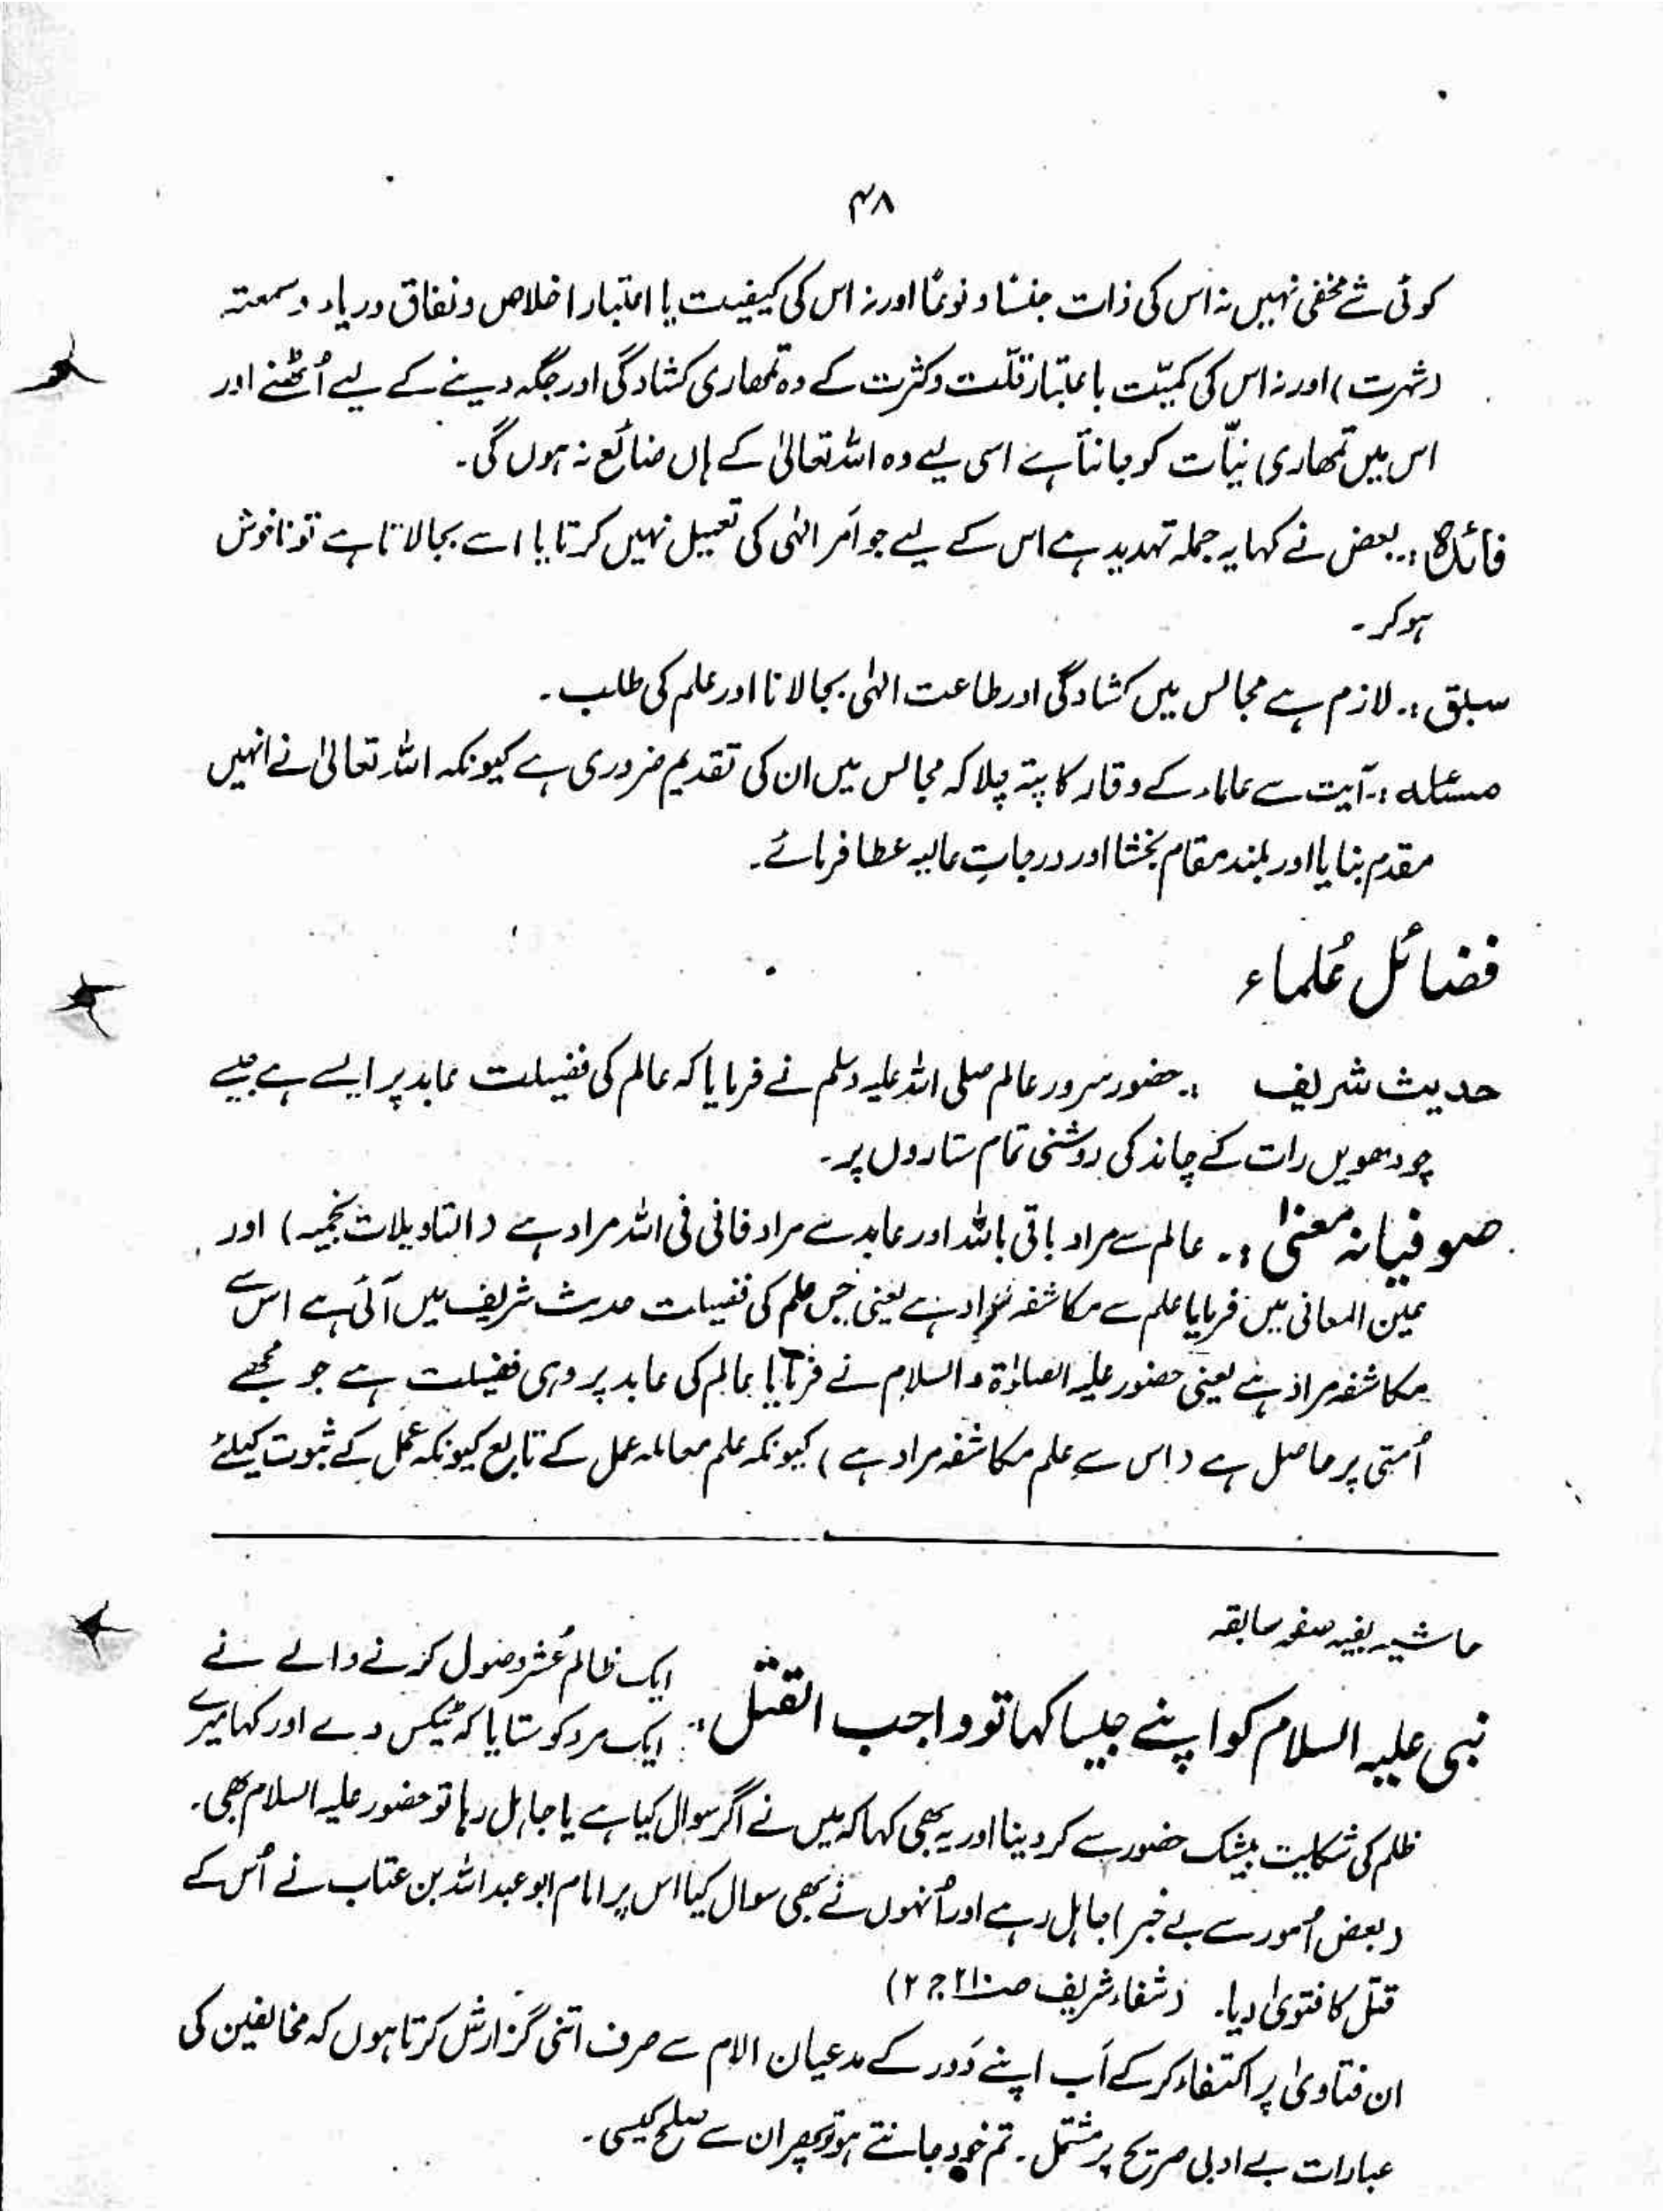 ۴۸
کوئی شے مخفی نہیں نہ اس کی ذات جنسًا و نوعًا اور نہ اس کی کیفیت یا اعتبار اخلاص و نفاق و ریاء و سمعتہ
(شہرت) اور نہ اس کی کمیّت باعتبار قلّت وکثرت کے وہ تمھاری کشادگی اور جگہ دینے کے لیے اُٹھنے اور
اس میں تمھاری نیّات کو جانتا ہے اسی لیے وہ اللہ تعالیٰ کے ہاں ضائع نہ ہوں گی۔
فائدہ :۔ بعض نے کہا یہ جملہ تہدید ہے اس کے لیے جو امَر الٰہی کی تعمیل نہیں کرتا یا اسے بجالاتا ہے تو ناخوش
ہوکر ۔
سبلق :۔ لازم ہے مجالس میں کشادگی اور طاعت الٰہی بجالانا اور علم کی طلب ۔
مسئلہ :۔ آیت سے علماء کے وقار کا پتہ چلا کہ مجالس میں ان کی تقدیم ضروری ہے کیونکہ اللہ تعالیٰ نے انہیں
مقدم بنایا اور بلند مقام بخشا اور درجاتِ عالیہ عطا فرمائے۔
فضائل عُلماء
حدیث شریف :۔ حضور سرور عالم صلی اللہ علیہ وسلم نے فرمایا کہ عالم کی فضیلت عابد پر ایسے ہے جیسے
چودھویں رات کے چاند کی روشنی تمام ستاروں پر۔
صوفیانہ معنیٰ :۔ عالم سے مراد باقی باللہ اور عابد سے مراد فانی فی اللہ مراد ہے (التاویلات نجمیہ) اور
عین المعانی میں فرمایا علم سے مکاشفہ مراد ہے یعنی جس علم کی فضیلت حدیث شریف میں آئی ہے اس سے
مکاشفہ مراد ہے یعنی حضور علیہ الصلوٰۃ والسلام نے فرمایا عالم کی عابد پر وہی فضیلت ہے جو مجھے
اُمتی پر حاصل ہے (اس سے علم مکاشفہ مراد ہے) کیونکہ علم معاملہ عمل کے تابع کیونکہ عمل کے ثبوت کیلئے
حاشیہ بقیہ صفحہ سابقہ
نبی علیہ السلام کو اپنے جیسا کہا تو واجب القتل :۔ ایک ظالم عُشر وصول کرنے والے نے
ایک مرد کو ستایا کہ ٹیکس دے اور کہا میرے
ظلم کی شکایت بیشک حضور سے کر دینا اور یہ بھی کہا کہ میں نے اگر سوال کیا ہے یا جاہل رہا تو حضور علیہ السلام بھی۔
(بعض اُمور سے بے خبر) جاہل رہے اور اُنہوں نے بھی سوال کیا اس پر امام ابو عبد اللہ بن عتاب نے اُس کے
قتل کا فتویٰ دیا۔ (شفاء شریف صـ۲۱۰ ج ۲)
ان فتاویٰ پر اکتفاء کرکے اَب اپنے دَور کے مدعیان الام سے صرف اتنی گزارش کرتا ہوں کہ مخالفین کی
عبارات بے ادبی صریح پر مشتمل ۔ تم خود جانتے ہو تو پھر ان سے صلح کیسی ۔